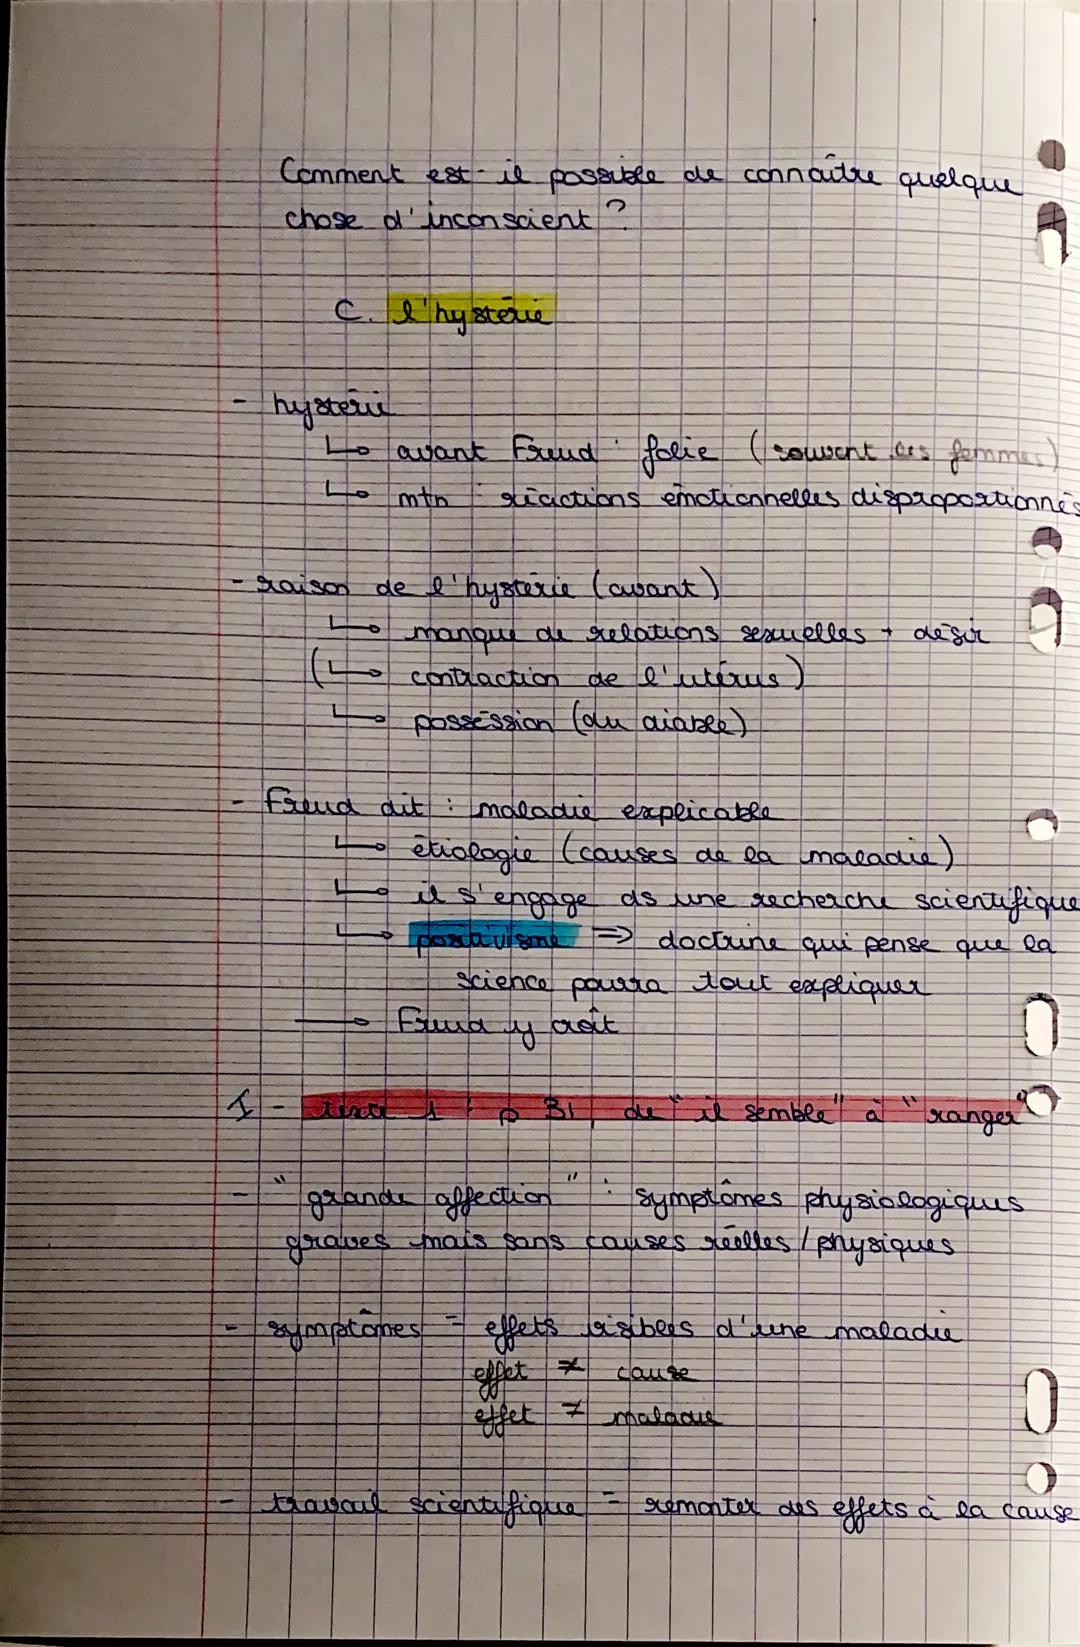 Comment est-il possible de connaître quelque
chose d'inconscient ?
C. l'hystérie
- hystérie
↳ avant Freud : folie (souvent des femmes)
↳ mtn : réactions émotionnelles disproportionnés
- raison de l'hystérie (avant)
↳ manque de relations sexuelles + désir
(↳ contraction de l'utérus)
↳ possession (du diable)
- Freud dit : maladie explicable
↳ étiologie (causes de la maladie)
↳ il s'engage ds une recherche scientifique
↳ positivisme ⇒ doctrine qui pense que la
science pourra tout expliquer
→ Freud y croit
I - texte 1 : p 31, de "il semble" à "ranger"
- "grande affection" : symptômes physiologiques
graves mais sans causes réelles / physiques
- symptômes = effets visibles d'une maladie
effet ≠ cause
effet ≠ maladie
- travail scientifique = remonter des effets à la cause